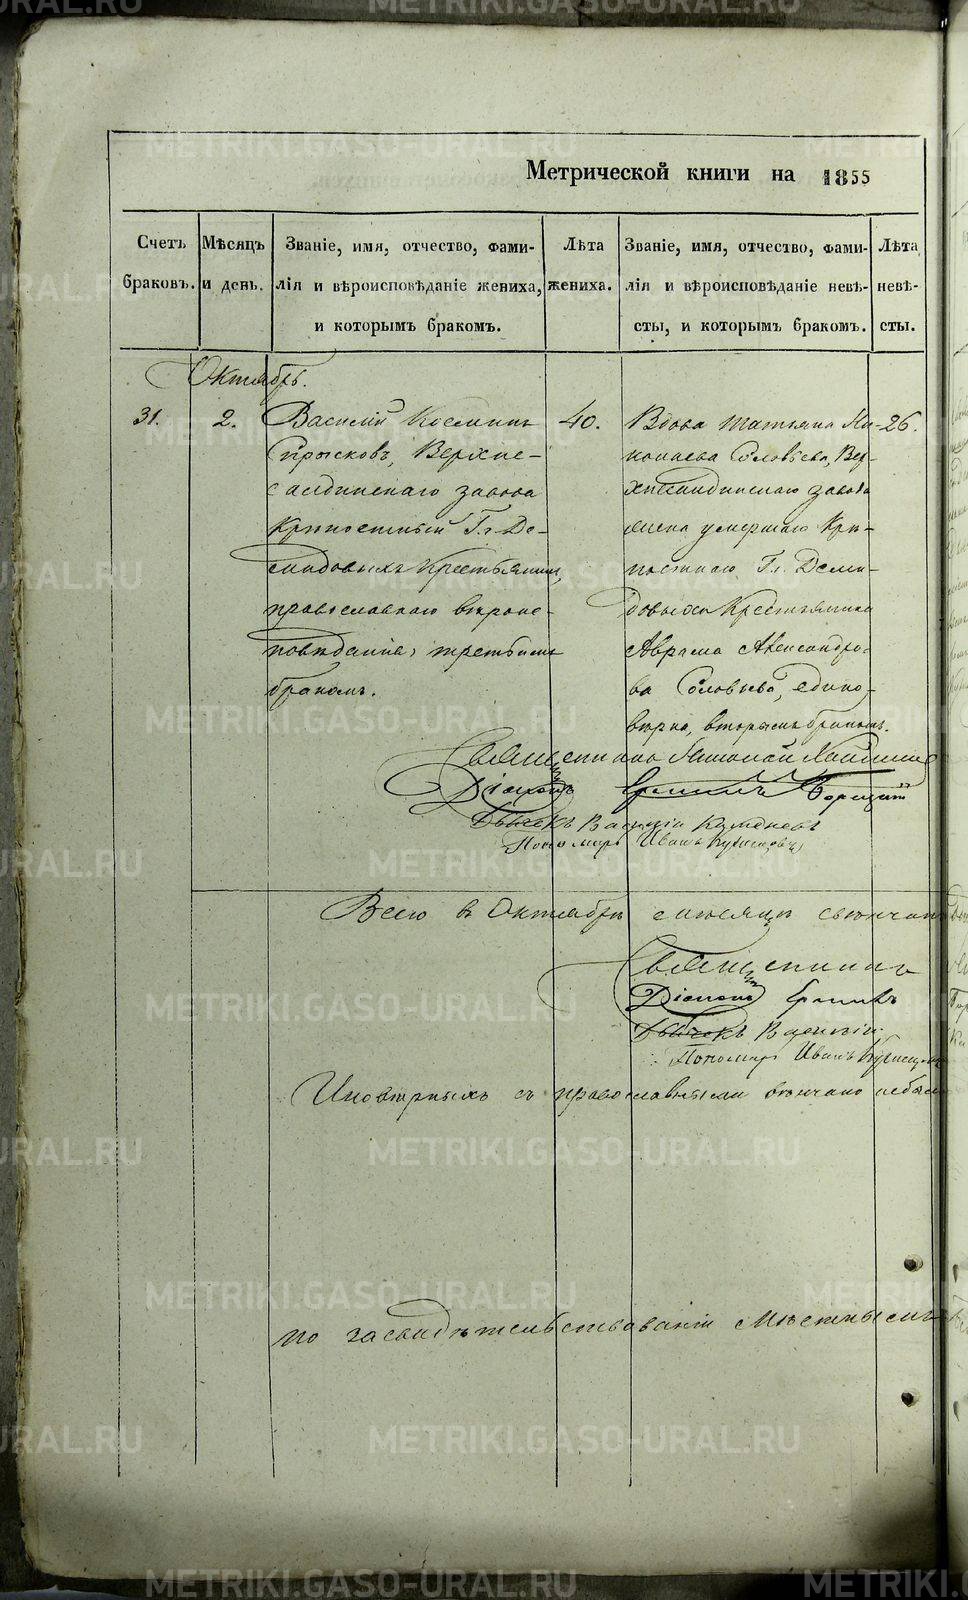 Метрической книги на 1855
Счетъ браковъ.
Мѣсяцъ и день.
Званіе, имя, отчество, фами-
лія и вѣроисповѣданіе жениха,
и которымъ бракомъ.
Лѣта жениха.
Званіе, имя, отчество, фами-
лія и вѣроисповѣданіе невѣ-
сты, и которымъ бракомъ.
Лѣта невѣ-
сты.
Октябрь.
31.
2.
Василій Косминъ
Спрысковъ, Верхне-
салдинскаго завода
Крѣпостный Гг. Де-
мидовыхъ Крестьянинъ,
православнаго вѣроис-
повѣданія, третьимъ
бракомъ.
40.
Вдова Татьяна Ни-
колаева Соловьева, Вер-
хнесалдинскаго завода
жена умершаго Крѣ-
постнаго Гг. Деми-
довыхъ Крестьянина
Аврама Александро-
ва Соловьева, едино-
вѣрка, вторымъ бракомъ.
26.
Священникъ
Діаконъ Ермилъ
Дьячекъ Василій
Пономарь Иванъ Кузнецовъ
Всего въ Октябрѣ мѣсяцѣ вѣнчано
Священникъ
Діаконъ Ермилъ
Дьячекъ Василій
Пономарь Иванъ Кузнецовъ
Иновѣрныхъ съ православными вѣнчано небыло
по засвидѣтельствованіи мѣстнымъ
METRIKI.GASO-URAL.RU